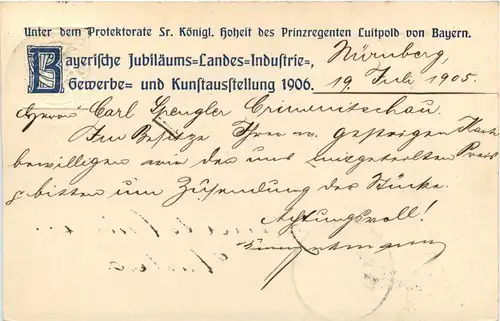 Unter dem Protektorate Sr. Königl. Hoheit des Prinzregenten Luitpold von Bayern.
Bayerische Jubiläums-Landes-Industrie-,
Gewerbe- und Kunstausstellung 1906.
Nürnberg,
19. Juli 1905.
Herrn Carl Spengler Crimmitschau.
Im Besitze Ihrer gestrigen Karte
bewilligen wir den uns mitgeteilten Preis
& bitten um Zusendung der Stücke.
Achtungsvoll!